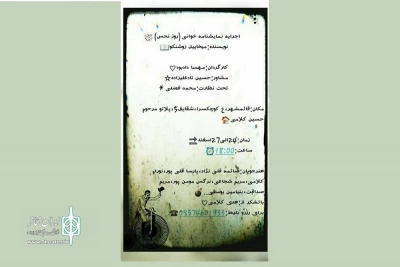 اجرایه نمایشنامه خوانی (روز نحس)
نویسنده:میخاییل زوشنکو
کارگردان:مهسا دادبود
مشاور:حسین نادعلیزاده
تحت نظارت:محمد فضلی
مکان:قائمشهر،خ کوچکسرا،شقایق5،پلاتو مرحوم
حسین کلامی
زمان:24الی27اسفند
ساعت:18:00
هنرجویان:فائمه قلی نژاد،پارسا قلی پور،نورای
کلامی،مریم شجاعی،نرگس مومن پور،مریم
صداقت،بنیامین یوسفی...
باتشکر از:هدی کلامی
برای رزرو بلیط: